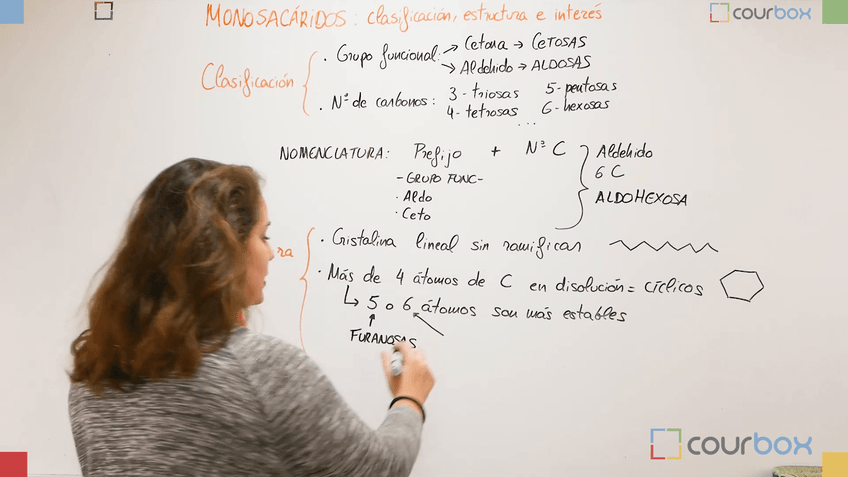 MONOSACÁRIDOS: clasificación, estructura e interés
courbox
Clasificación
· Grupo funcional: → Cetona → CETOSAS
→ Aldehido → ALDOSAS
· Nº de carbonos: 3 - triosas 5 - pentosas
4 - tetrosas 6 - hexosas
...
NOMENCLATURA: Prefijo + Nº C
- GRUPO FUNC -
· Aldo
· Ceto
Aldehido
6 C
ALDOHEXOSA
ra
· Cristalina lineal sin ramificar
· Más de 4 átomos de C en disolución = cíclicos
↳ 5 o 6 átomos son más estables
FURANOSAS
courbox